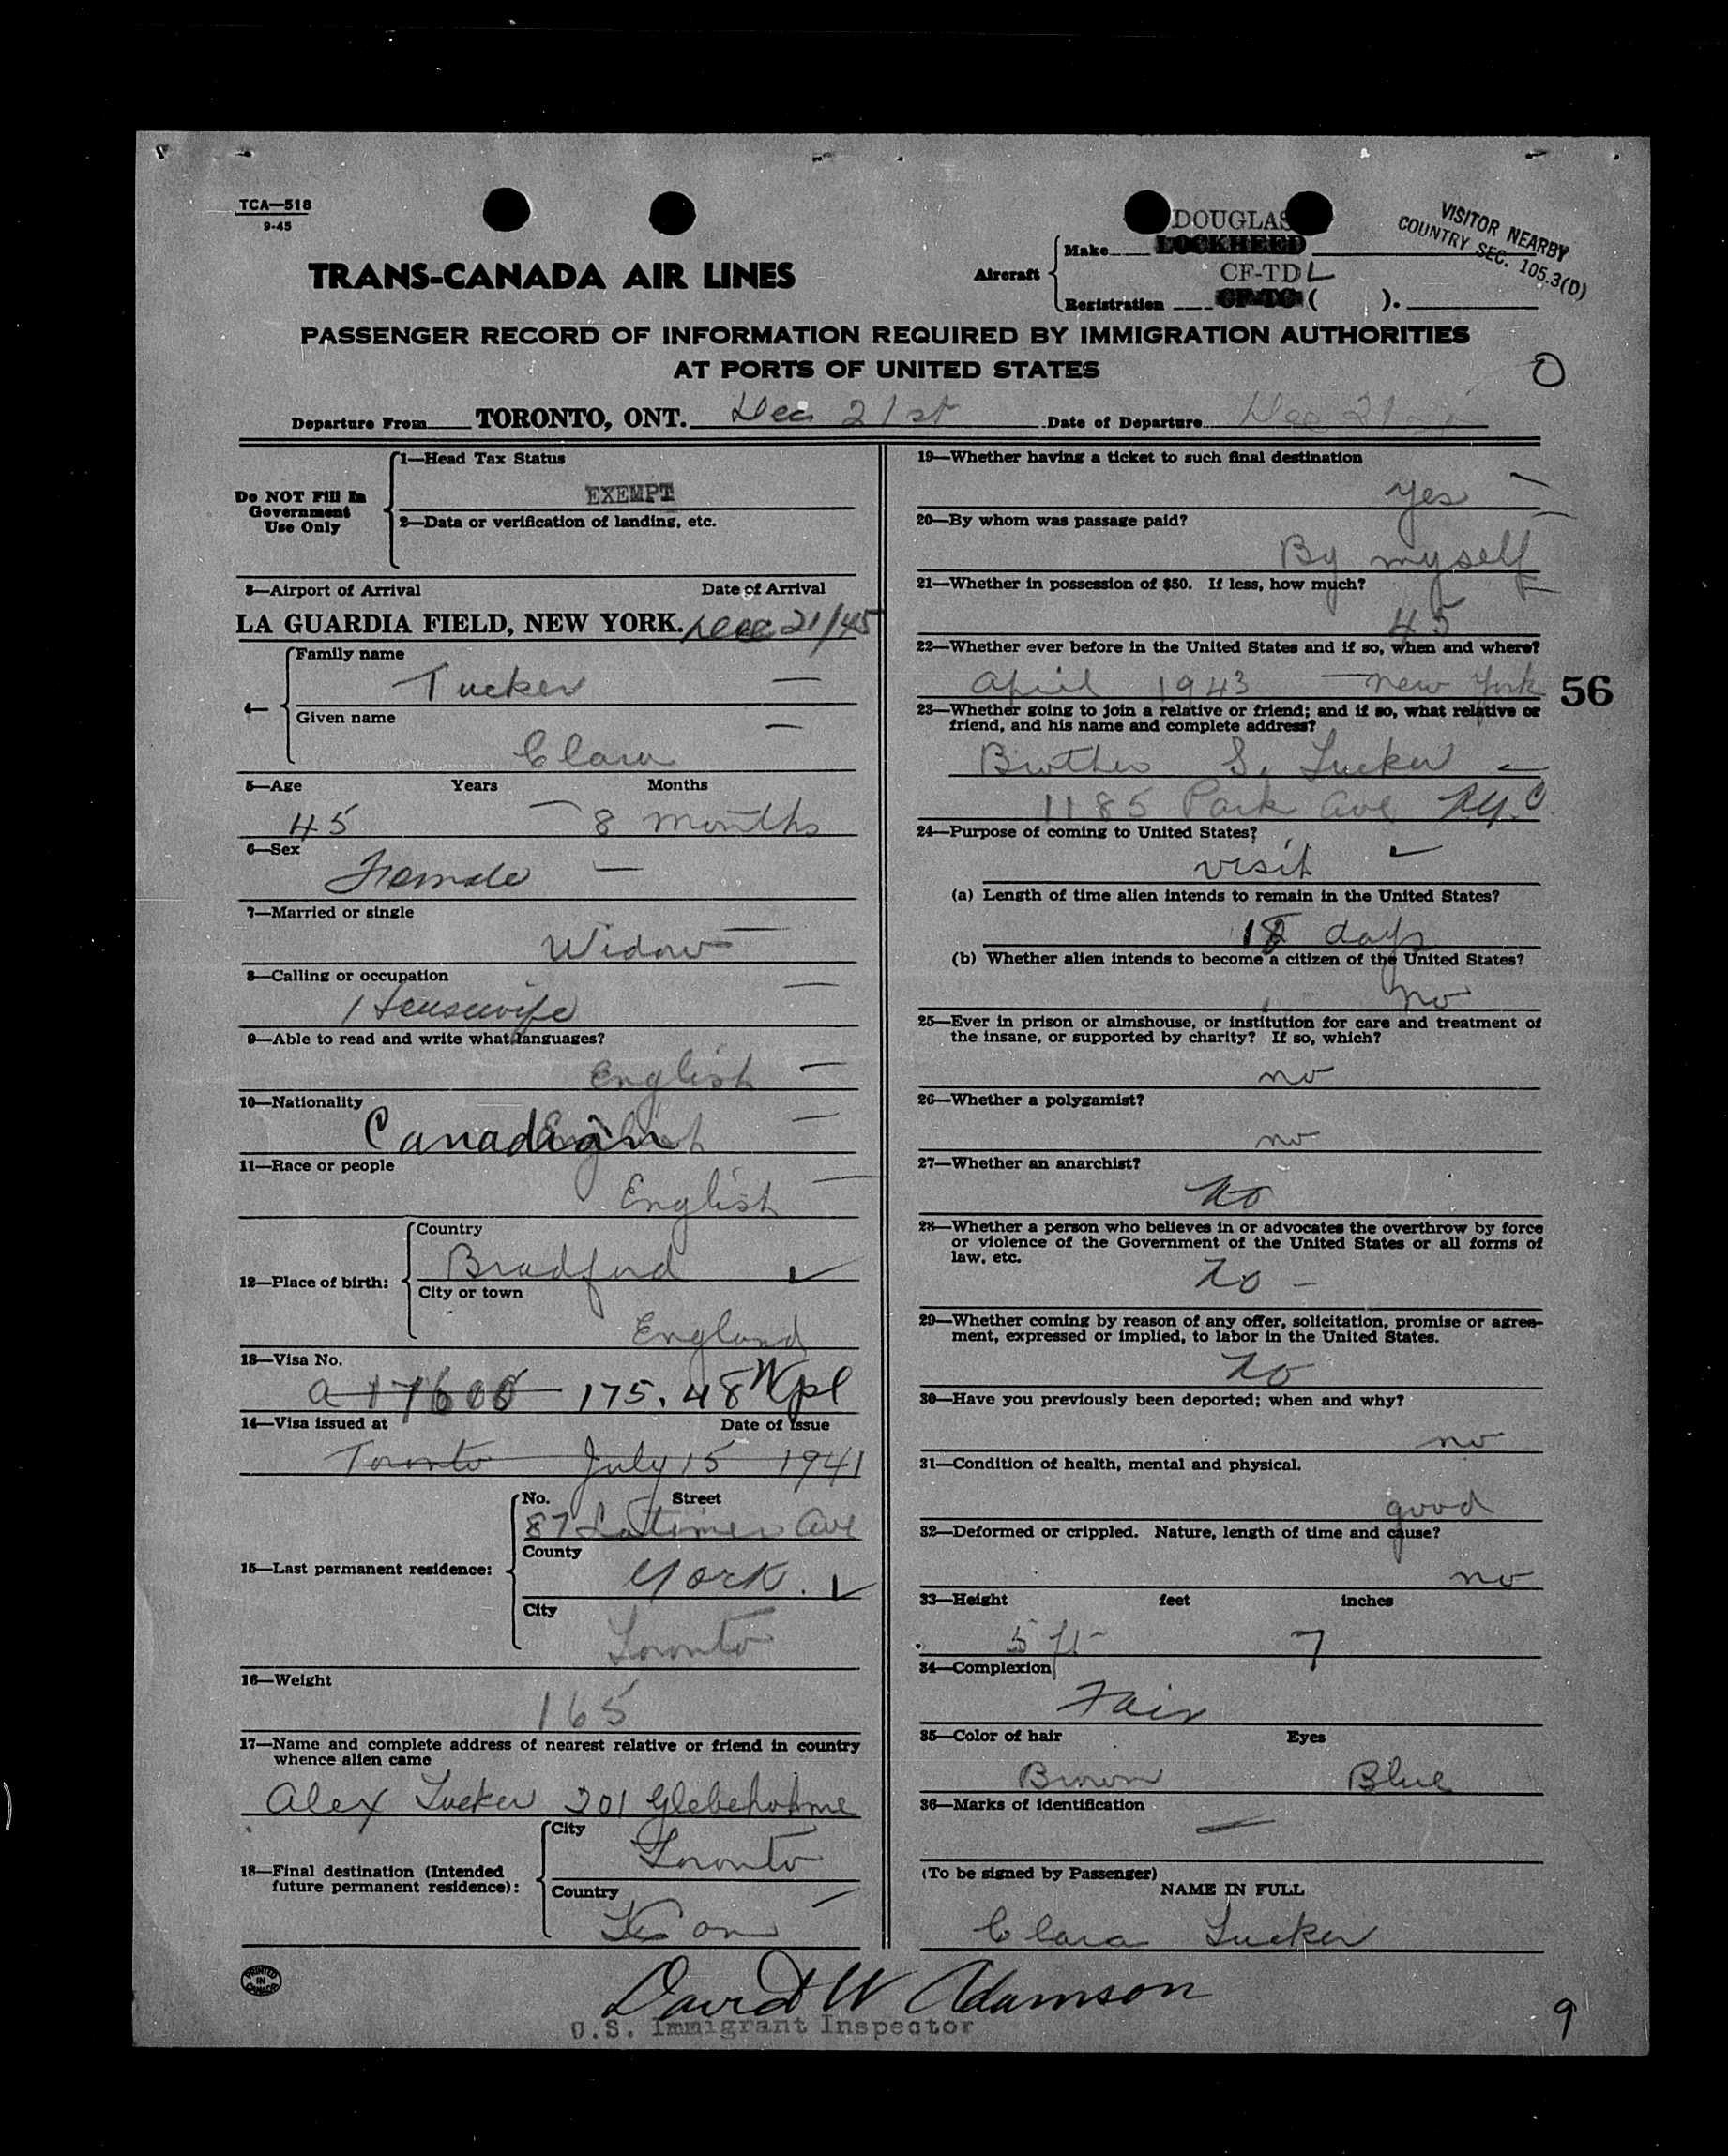 TCA—518
9-45
DOUGLAS
Make LOCKHEED
VISITOR NEARBY
COUNTRY SEC. 105.3(D)
TRANS-CANADA AIR LINES
Aircraft
CF-TDL
Registration CF-TC ( ).
PASSENGER RECORD OF INFORMATION REQUIRED BY IMMIGRATION AUTHORITIES
AT PORTS OF UNITED STATES
O
Departure From TORONTO, ONT. Dec 21st Date of Departure Dec 21st
Do NOT Fill In
Government
Use Only
1—Head Tax Status
EXEMPT
2—Data or verification of landing, etc.
3—Airport of Arrival Date of Arrival
LA GUARDIA FIELD, NEW YORK. Dec 21/45
4—
Family name
Tucker —
Given name
Clara —
5—Age Years Months
45 — 8 months
6—Sex
Female —
7—Married or single
Widow —
8—Calling or occupation
Housewife —
9—Able to read and write what languages?
English —
10—Nationality
Canadian —
11—Race or people
English —
12—Place of birth:
Country
Bradford ✓
City or town
England
13—Visa No.
a 17605 175.48
14—Visa issued at Date of Issue
Toronto July 15 1941
15—Last permanent residence:
No. Street
87 Latimer Ave
County
York. ✓
City
Toronto
16—Weight
165
17—Name and complete address of nearest relative or friend in country
whence alien came
Alex Tucker 201 Glebeholme
18—Final destination (Intended
future permanent residence):
City
Toronto
Country
on
19—Whether having a ticket to such final destination
Yes —
20—By whom was passage paid?
By myself
21—Whether in possession of $50. If less, how much?
45
22—Whether ever before in the United States and if so, when and where?
April 1943 — New York
56
23—Whether going to join a relative or friend; and if so, what relative or
friend, and his name and complete address?
Brother S. Tucker —
1185 Park Ave N.Y.C
24—Purpose of coming to United States?
visit ✓
(a) Length of time alien intends to remain in the United States?
days
(b) Whether alien intends to become a citizen of the United States?
no
25—Ever in prison or almshouse, or institution for care and treatment of
the insane, or supported by charity? If so, which?
no
26—Whether a polygamist?
no
27—Whether an anarchist?
no
28—Whether a person who believes in or advocates the overthrow by force
or violence of the Government of the United States or all forms of
law, etc.
no —
29—Whether coming by reason of any offer, solicitation, promise or agree-
ment, expressed or implied, to labor in the United States.
no
30—Have you previously been deported; when and why?
no
31—Condition of health, mental and physical.
good
32—Deformed or crippled. Nature, length of time and cause?
no
33—Height feet inches
5 ft 7
34—Complexion
Fair
35—Color of hair Eyes
Brown Blue
36—Marks of identification
—
(To be signed by Passenger)
NAME IN FULL
Clara Tucker
PRINTED
IN
CANADA
David W Adamson
U.S. Immigrant Inspector
9